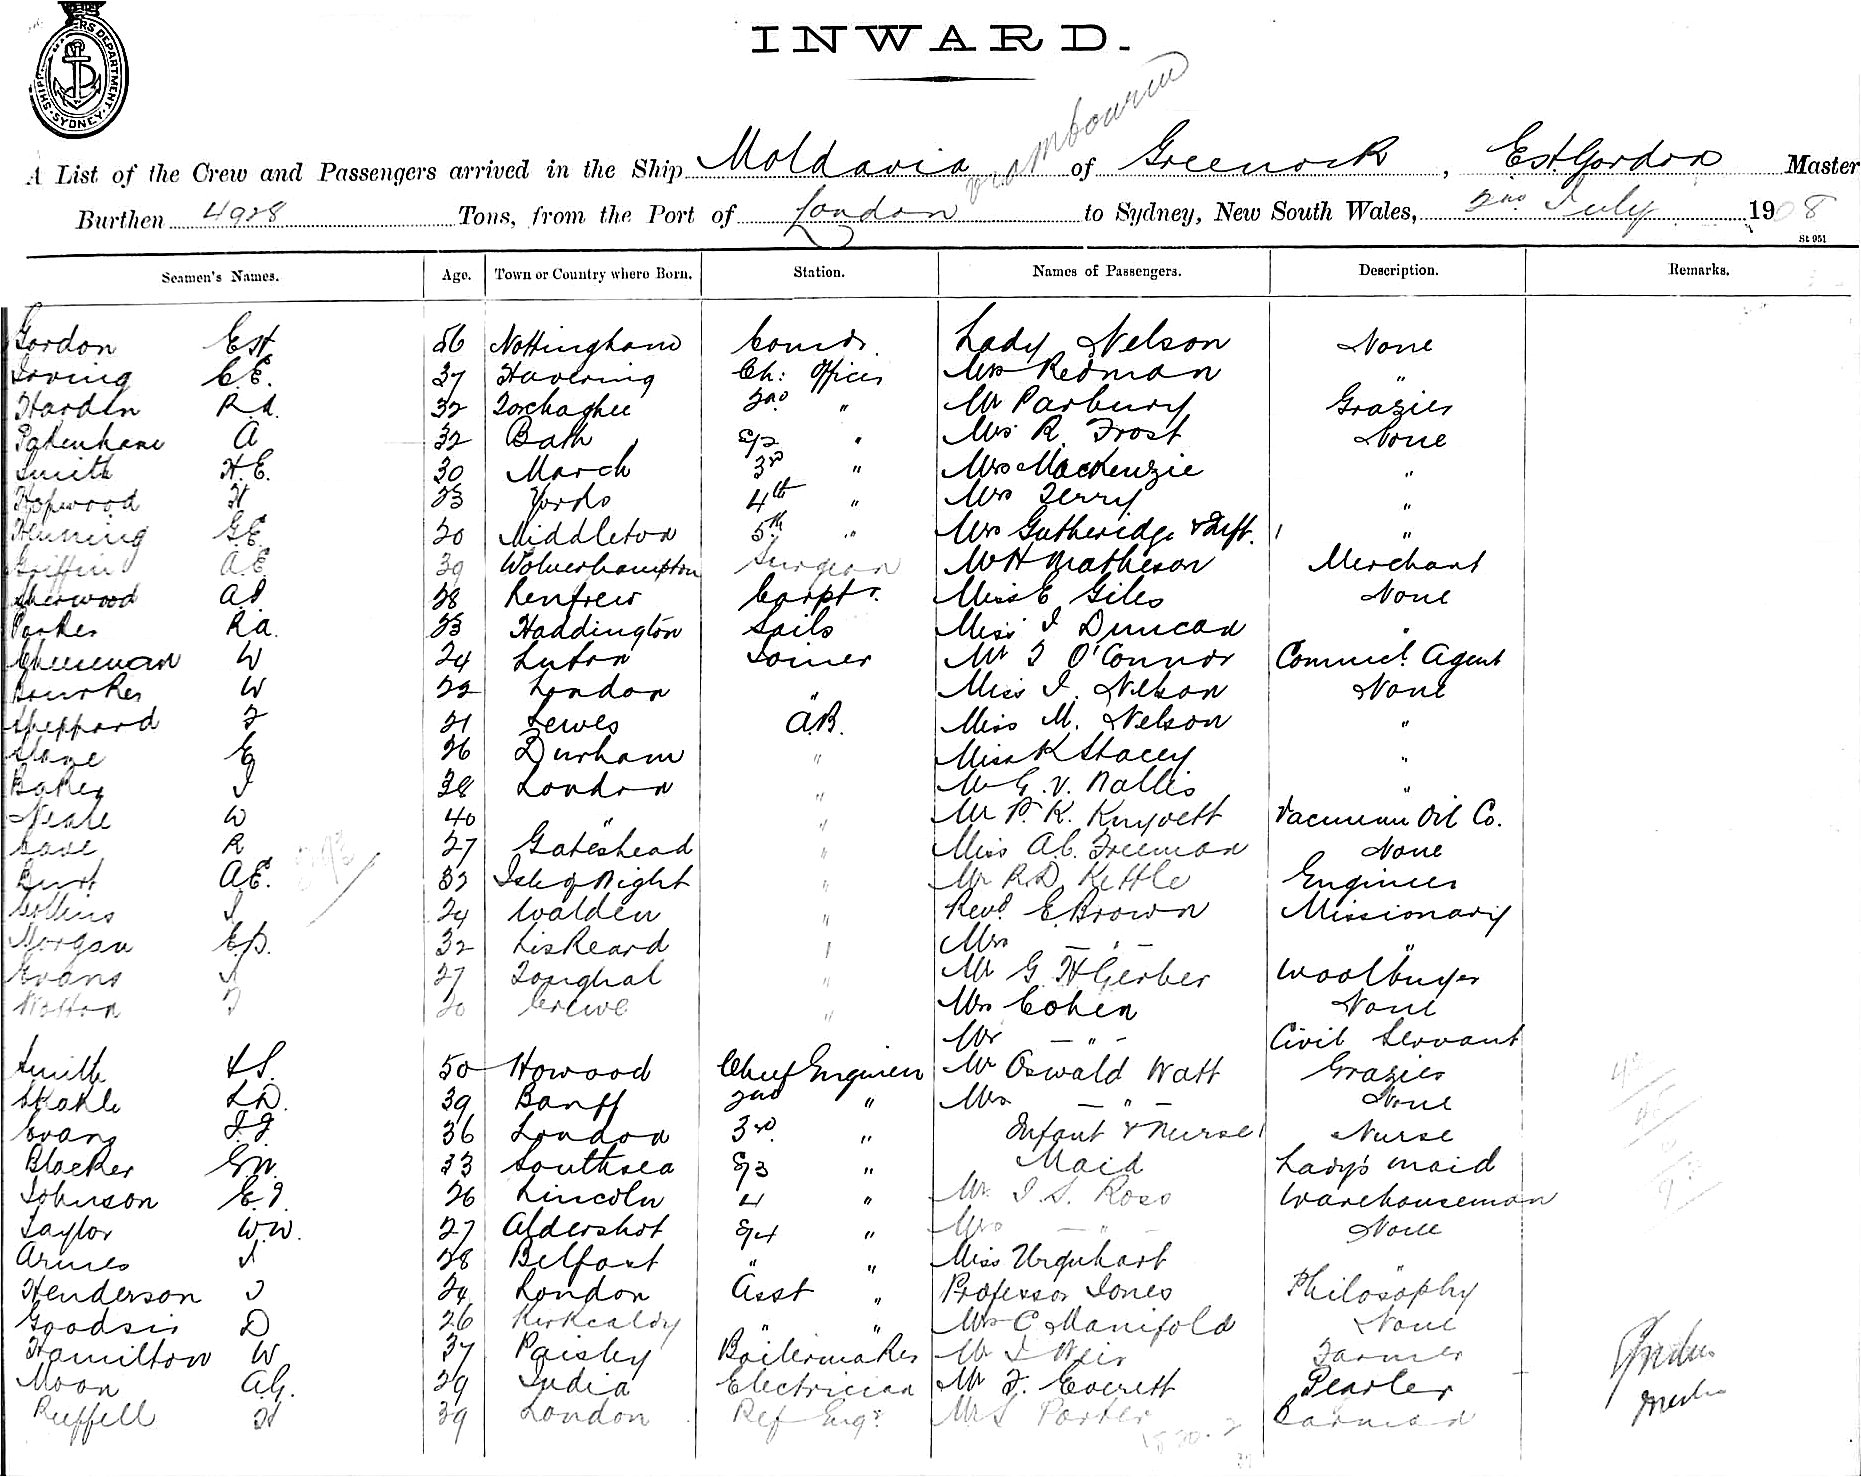 INWARD.
SHIPPING MASTERS DEPARTMENT SYDNEY
A List of the Crew and Passengers arrived in the Ship Moldavia of Greenock, E. St. Gordon Master
Burthen 4928 Tons, from the Port of London to Sydney, New South Wales, 2nd July 1908
St 951
Seamen's Names. Age. Town or Country where Born. Station. Names of Passengers. Description. Remarks.
Gordon E St 56 Nottingham Comdr. Lady Nelson None
Irving C.E. 37 Havering Ch: Officer Mrs Redman "
Harden R.L. 32 2nd " Mr Parbury Grazier
Pakenham A 32 Bath S/2 " Mrs R. Frost None
Smith H.E. 30 March 3rd " Mrs MacKenzie "
Hopwood H 23 Yorks 4th " Mrs Terry "
Henning G.E. 20 Middleton 5th " Mrs Gutheridge & Inft. 1 "
Griffin A.E. 39 Wolverhampton Surgeon Mr H Matheson Merchant
Sherwood A.J. 28 Renfrew Carptr. Miss E Giles None
Parker R.A. 23 Haddington Sails Miss J Duncan "
Cheeseman W 24 Luton Joiner Mr J O'Connor Commcl. Agent
Bourker W 22 London " Miss J. Nelson None
Sheppard F 21 Lewes A.B. Miss M. Nelson "
Slane E 26 Durham " Miss K Stacey "
Baker J 38 London " Mr G. V. Rallis "
Neale W 40 " " Mr P. K. Knyvett Vacuum Oil Co.
Cave R 27 Gateshead " Miss A.C. Freeman None
Burt A.E. 32 Isle of Wight " Mr R.D. Kettle Engineer
Collins J 24 Walden " Revd. E. Brown Missionary
Morgan E.P. 32 Liskeard " Mrs — " — "
Evans J 27 Youghal " Mr G. H Gerber Woolbuyer
Wotton F 20 Crewe " Mrs Cohen None
Mr — " — Civil Servant
Smith 50 Howood Chief Engineer Mr Oswald Watt Grazier
Skakle L.D. 39 Banff 2nd " Mrs — " — None
Evans J.J. 36 London 3rd " Infant & Nurse 1 Nurse
Blacker G.W. 33 Southsea S/3 " Maid Lady's Maid
Johnson E.J. 26 Lincoln 4 " Mr. J. S. Ross Warehouseman
Taylor W.W. 27 Aldershot S/4 " Mrs — " — None
Armes J 28 Belfast " " Miss Urquhart "
Henderson J 24 London Asst " Professor Jones Philosophy
Goodsir D 26 Kirkcaldy " " Mrs C Manifold None
Hamilton W 37 Paisley Boilermaker Mr J Weir Farmer
Moon A.G. 29 India Electrician Mr F. Everett Pearler
Ruffell H 39 London Ref Engr. Mr S Porter Barman